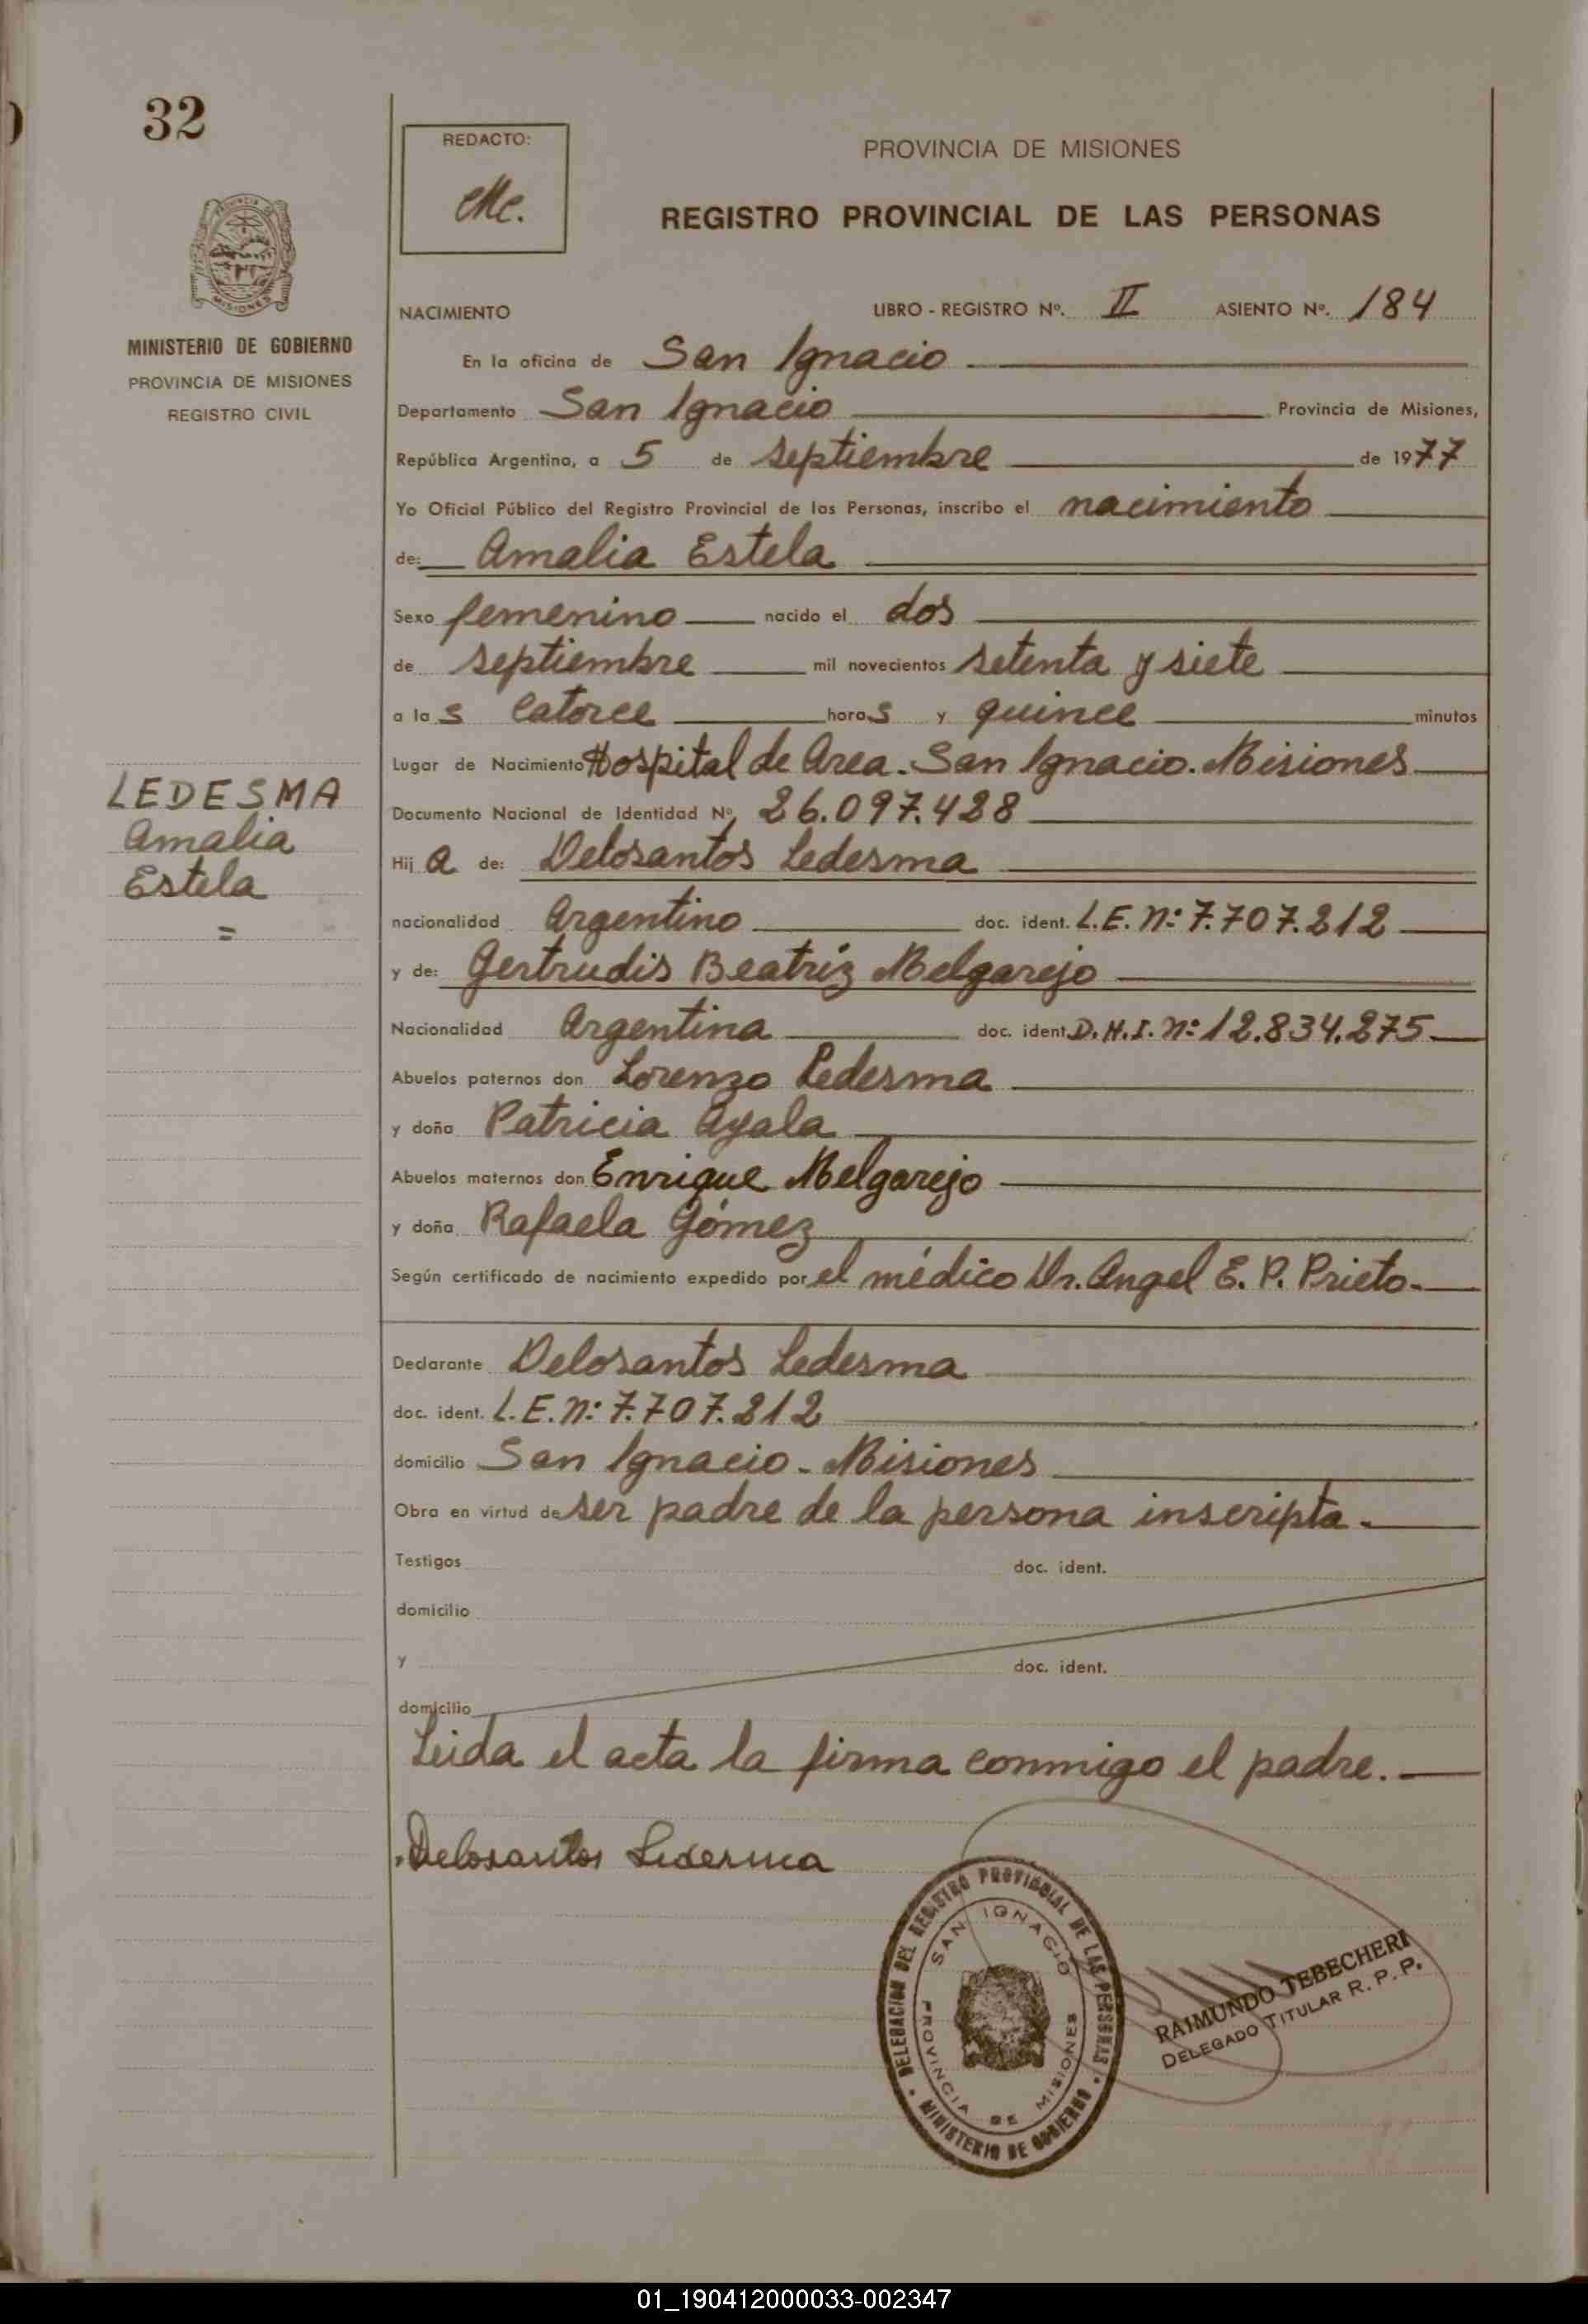 32
REDACTO:
PROVINCIA DE MISIONES
REGISTRO PROVINCIAL DE LAS PERSONAS
MISIONES
MINISTERIO DE GOBIERNO
PROVINCIA DE MISIONES
REGISTRO CIVIL
NACIMIENTO LIBRO - REGISTRO Nº. II ASIENTO Nº. 184
En la oficina de San Ignacio
Departamento San Ignacio Provincia de Misiones,
República Argentina, a 5 de septiembre de 1977
Yo Oficial Público del Registro Provincial de las Personas, inscribo el nacimiento
de: Amalia Estela
Sexo femenino nacido el dos
de septiembre mil novecientos setenta y siete
a las catorce horas y quince minutos
Lugar de Nacimiento Hospital de Area. San Ignacio. Misiones
LEDESMA
Amalia
Estela
=
Documento Nacional de Identidad Nº, 26.097.428
Hija de: Delosantos Ledesma
nacionalidad Argentino doc. ident. L.E. Nº: 7.707.212
y de: Gertrudis Beatriz Melgarejo
Nacionalidad Argentina doc. ident. D.N.I. Nº: 12.834.275
Abuelos paternos don Lorenzo Ledesma
y doña Patricia Ayala
Abuelos maternos don Enrique Melgarejo
y doña Rafaela Gómez
Según certificado de nacimiento expedido por el médico Dr. Angel E. P. Prieto.
Declarante Delosantos Ledesma
doc. ident. L.E. Nº: 7.707.212
domicilio San Ignacio - Misiones
Obra en virtud de ser padre de la persona inscripta.
Testigos doc. ident.
domicilio
y doc. ident.
domicilio
Leida el acta la firma conmigo el padre.
Delosantos Ledesma
DELEGACION DEL REGISTRO PROVINCIAL DE LAS PERSONAS
SAN IGNACIO
PROVINCIA DE MISIONES
MINISTERIO DE GOBIERNO
RAIMUNDO TEBECHERI
DELEGADO TITULAR R. P. P.
01_190412000033-002347